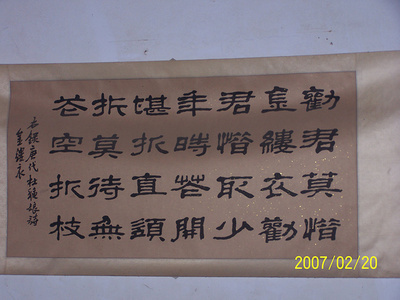 勸君莫惜
金縷衣勸
君惜取少
年時花開
堪折直須
折莫待無
花空折枝
錄唐代杜秋娘詩
金縷衣
2007/02/20